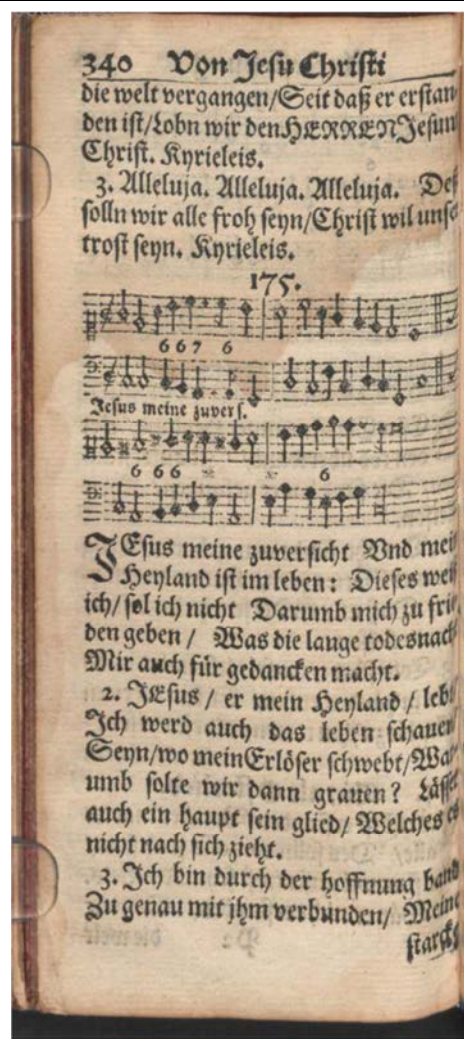 340 Von Jesu Christi
die welt vergangen/Seit daß er erstan
den ist/Lobn wir den HERREN Jesum
Christ. Kyrieleis.
3. Alleluja. Alleluja. Alleluja. Deß
solln wir alle froh seyn/Christ wil unser
trost seyn. Kyrieleis.
175.
6 6 7 6
Jesus meine zuvers.
6 6 6 6
JEsus meine zuversicht Vnd mein
Heyland ist im leben: Dieses weiß
ich/ sol ich nicht Darumb mich zu frie
den geben / Was die lange todesnacht
Mir auch für gedancken macht.
2. JEsus / er mein Heyland / lebt/
Jch werd auch das leben schauen/
Seyn/wo mein Erlöser schwebt/War-
umb solte mir dann grauen? Lässet
auch ein haupt sein glied/ Welches es
nicht nach sich zieht.
3. Jch bin durch der hoffnung band
Zu genau mit jhm verbunden/ Meine
starcke